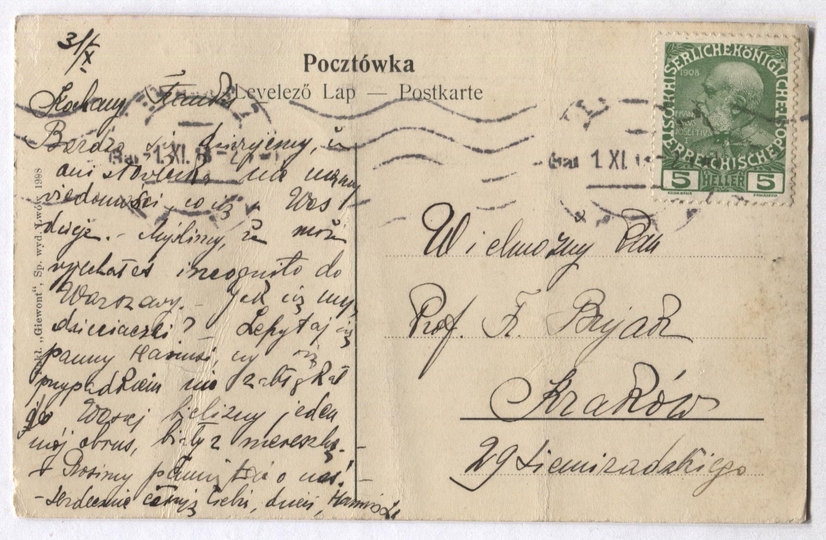 31/X
Pocztówka
Levelező Lap — Postkarte
Kochany Franku
Bardzo się dziwimy, że
ani słówka nie mamy
wiadomości, co się u Was
dzieje. - Myślimy, że może
wyjechałeś incognito do
Warszawy. - Jak się mają
dzieciaczki? - Zapytaj się
panny Hanusi, czy się
przypadkiem nie zabłąkał
do Waszej bielizny jeden
mój obrus, biały z mereszką. -
Prosimy pamiętać o nas! -
- Serdecznie całuję Ciebie, dzieci,
"Giewont", Sp. wyd. Lwów, 1908
1 XI
1 XI
KAISERLICHE KÖNIGLICHE
ÖSTERREICHISCHE POST
1908
5 HELLER 5
Wielmożny Pan
Prof. Fr. Bujak
Kraków
29 Siemiradzkiego